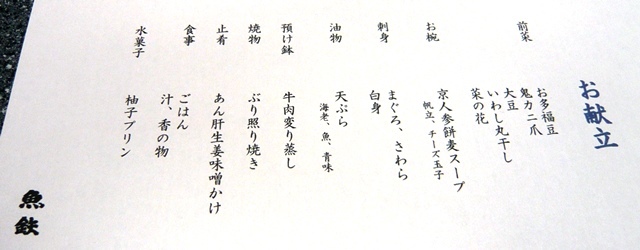 お献立
前菜
お多福豆
鬼カニ爪
大豆
いわし丸干し
菜の花
お椀
京人参餅麦スープ
帆立、チーズ玉子
刺身
まぐろ、さわら
白身
油物
天ぷら
海老、魚、青味
預け鉢
牛肉変り蒸し
焼物
ぶり照り焼き
止肴
あん肝生姜味噌かけ
食事
ごはん
汁、香の物
水菓子
柚子プリン
魚鉄